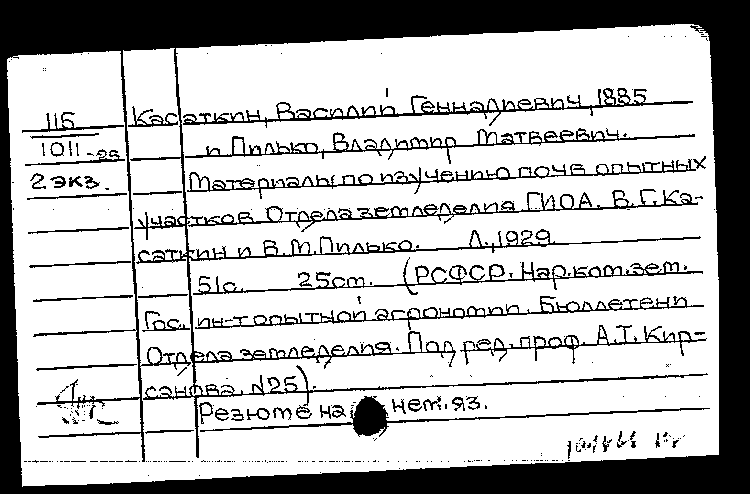 115
Касаткин, Василий Геннадиевич, 1885
1011-2а
и Пилько, Владимир Матвеевич.
2 экз.
Материалы по изучению почв опытных
участков Отдела земледелия ГИОА. В.Г. Ка-
саткин и В.М. Пилько. Л., 1929.
51с. 25см. (РСФСР. Нар.ком.зем.
Гос. ин-т опытной агрономии. Бюллетени
Отдела земледелия. Под ред. проф. А.Т. Кир-
санова. N25).
Резюме на нем. яз.